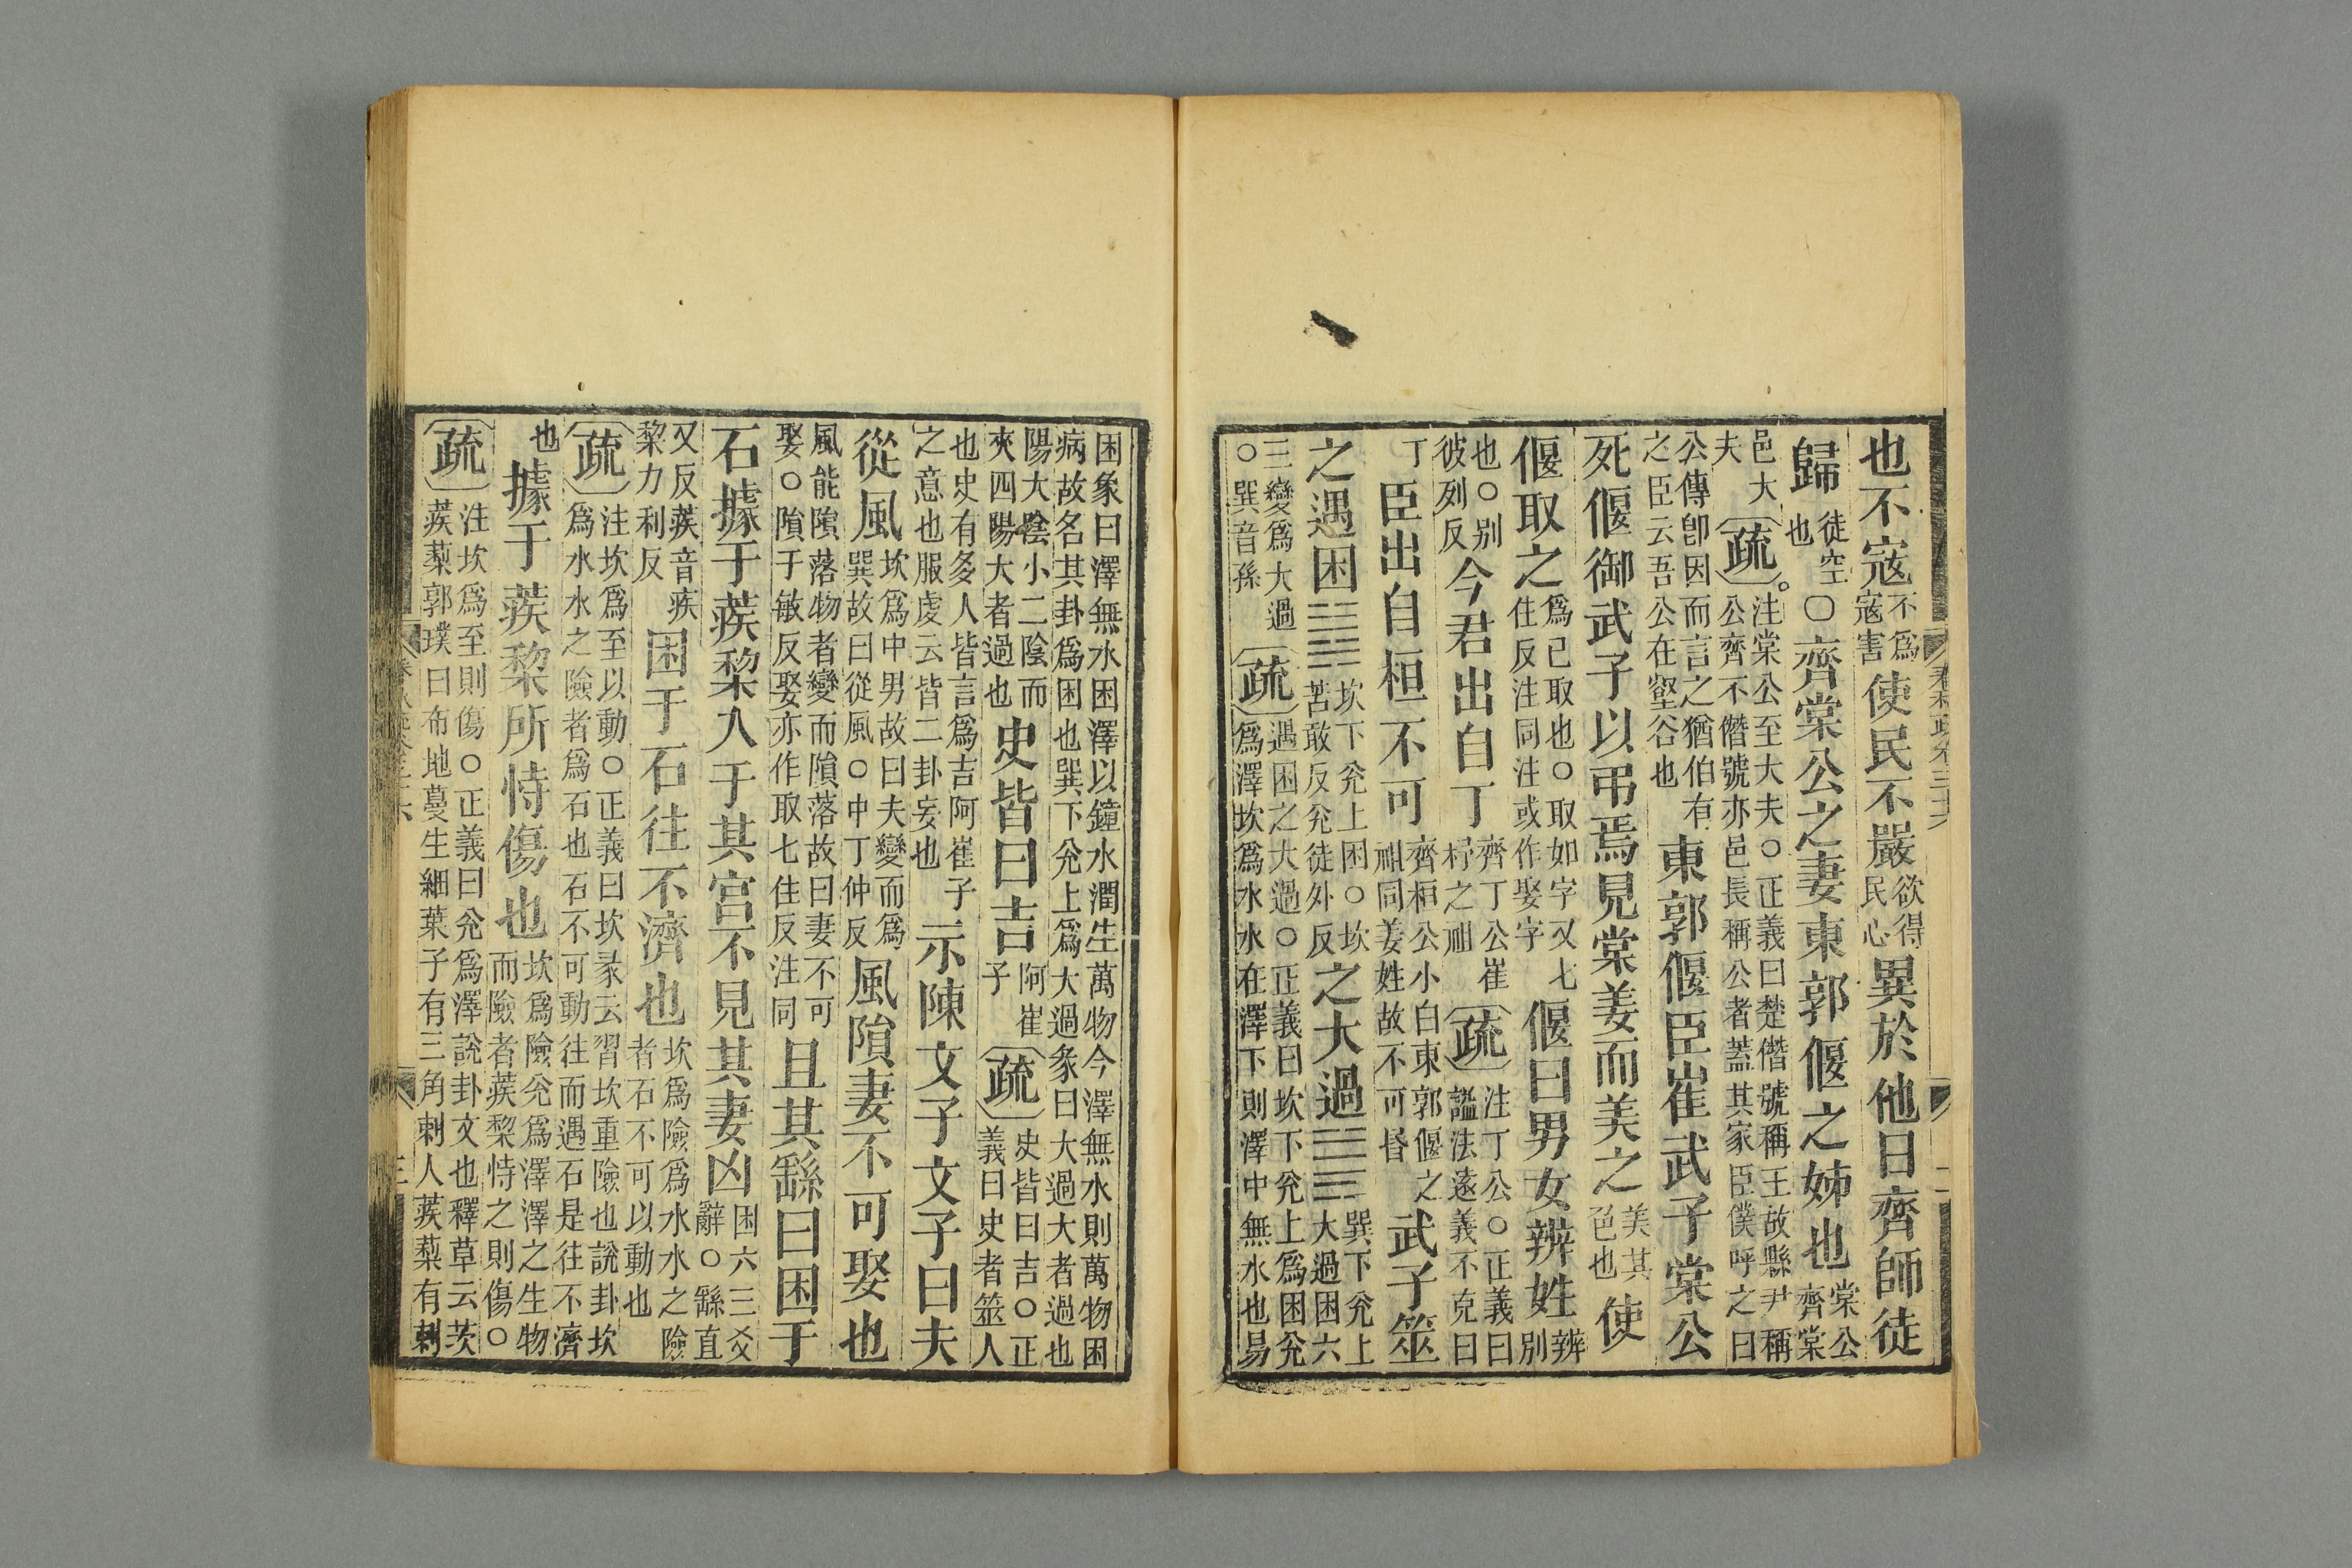 也不寇不爲寇害使民不嚴欲得民心異於他日齊師徒
歸徒空也○齊棠公之妻東郭偃之姊也棠公齊棠
邑大夫疏注棠公至大夫○正義曰楚僭號稱王故縣尹稱公齊不僭號亦邑長稱公者蓋其家臣僕呼之曰
公傳卽因而言之猶伯有之臣云吾公在壑谷也東郭偃臣崔武子棠公
死偃御武子以弔焉見棠姜而美之美其色也使
偃取之爲已取也○取如字又七住反注同注或作娶字偃曰男女辨姓辨別
也○別彼列反今君出自丁齊丁公崔杼之祖疏注丁公○正義曰謚法遂義不克曰
丁臣出自桓不可齊桓公小白東郭偃之祖同姜姓故不可昬武子筮
之遇困坎下兊上困○坎苦敢反兊徒外反之大過巽下兊上大過困六
三變爲大過○巽音孫疏遇困之大過○正義曰坎下兊上爲困兊爲澤坎爲水水在澤下則澤中無水也易
困象曰澤無水困澤以鐘水潤生萬物今澤無水則萬物困病故名其卦爲困也巽下兊上爲大過彖曰大過大者過也
陽大陰小二陰而夾四陽大者過也史皆曰吉阿崔子疏史皆曰吉○正義曰史者筮人
也史有多人皆言爲吉阿崔子之意也服虔云皆二卦妄也示陳文子文子曰夫
從風坎爲中男故曰夫變而爲巽故曰從風○中丁仲反風隕妻不可娶也
風能隕落物者變而隕落故曰妻不可娶○隕于敏反娶亦作取七住反注同且其繇曰困于
石據于蒺梨入于其宮不見其妻凶困六三爻辭○繇直
又反蒺音疾黎力利反困于石往不濟也坎爲險爲水水之險者石不可以動也
疏注坎爲至以動○正義曰坎彖云習坎重險也說卦坎爲水水之險者爲石也石不可動往而遇石是往不濟
也據于蒺梨所恃傷也坎爲險兊爲澤澤之生物而險者蒺梨恃之則傷○
疏注坎爲至則傷○正義曰兊爲澤說卦文也釋草云茨蒺蔾郭璞曰布地蔓生細葉子有三角刺人蒺蔾有刺